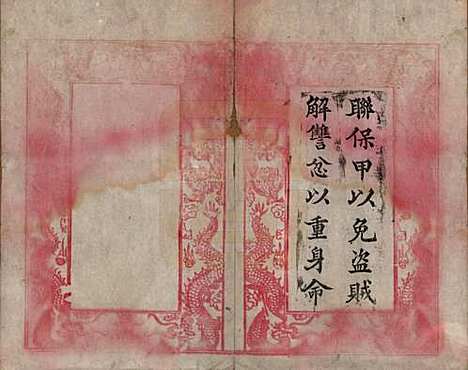 聯保甲以免盗賊
解讐忿以重身命